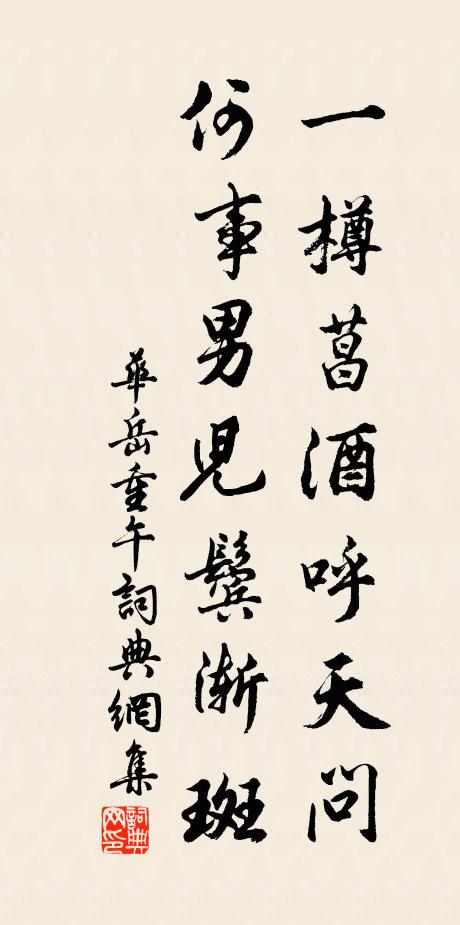 一樽菖酒呼天問
何事男児鬢漸斑
華岳重午詞典網集
詞典網印